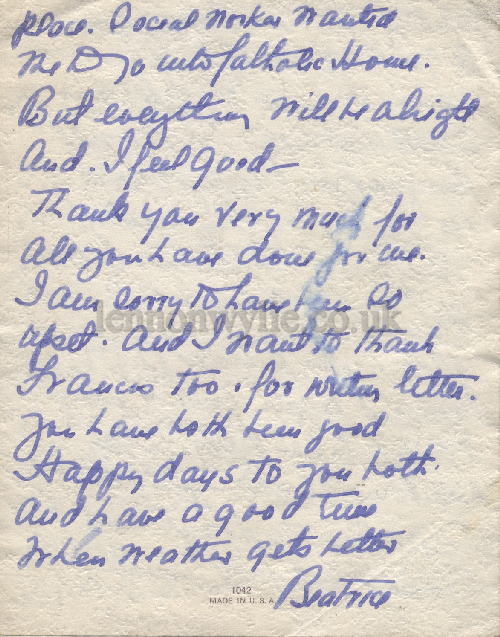 place. Social Worker Wanted
me to go into Catholic Home.
But everything will be alright
And. I feel good —
Thank you very much for
all you have done for me.
I am sorry to have been so
upset. And I want to thank
Francis too. for writing letter.
You have both been good
Happy days to you both.
And have a good time
When weather gets better
Beatrice
lennonwylie.co.uk
1042
MADE IN U.S.A.